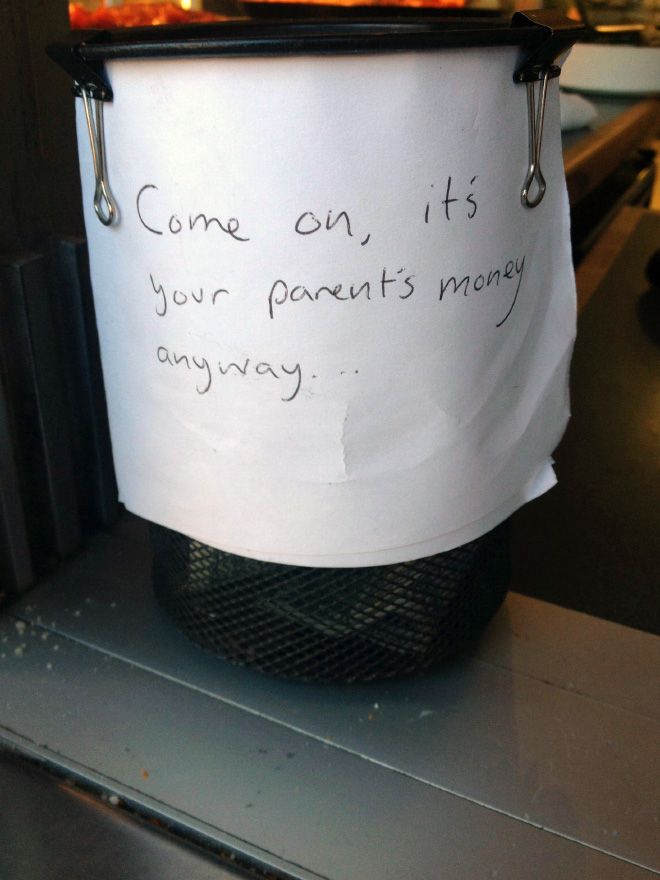 Come on, it's
your parent's money
anyway...